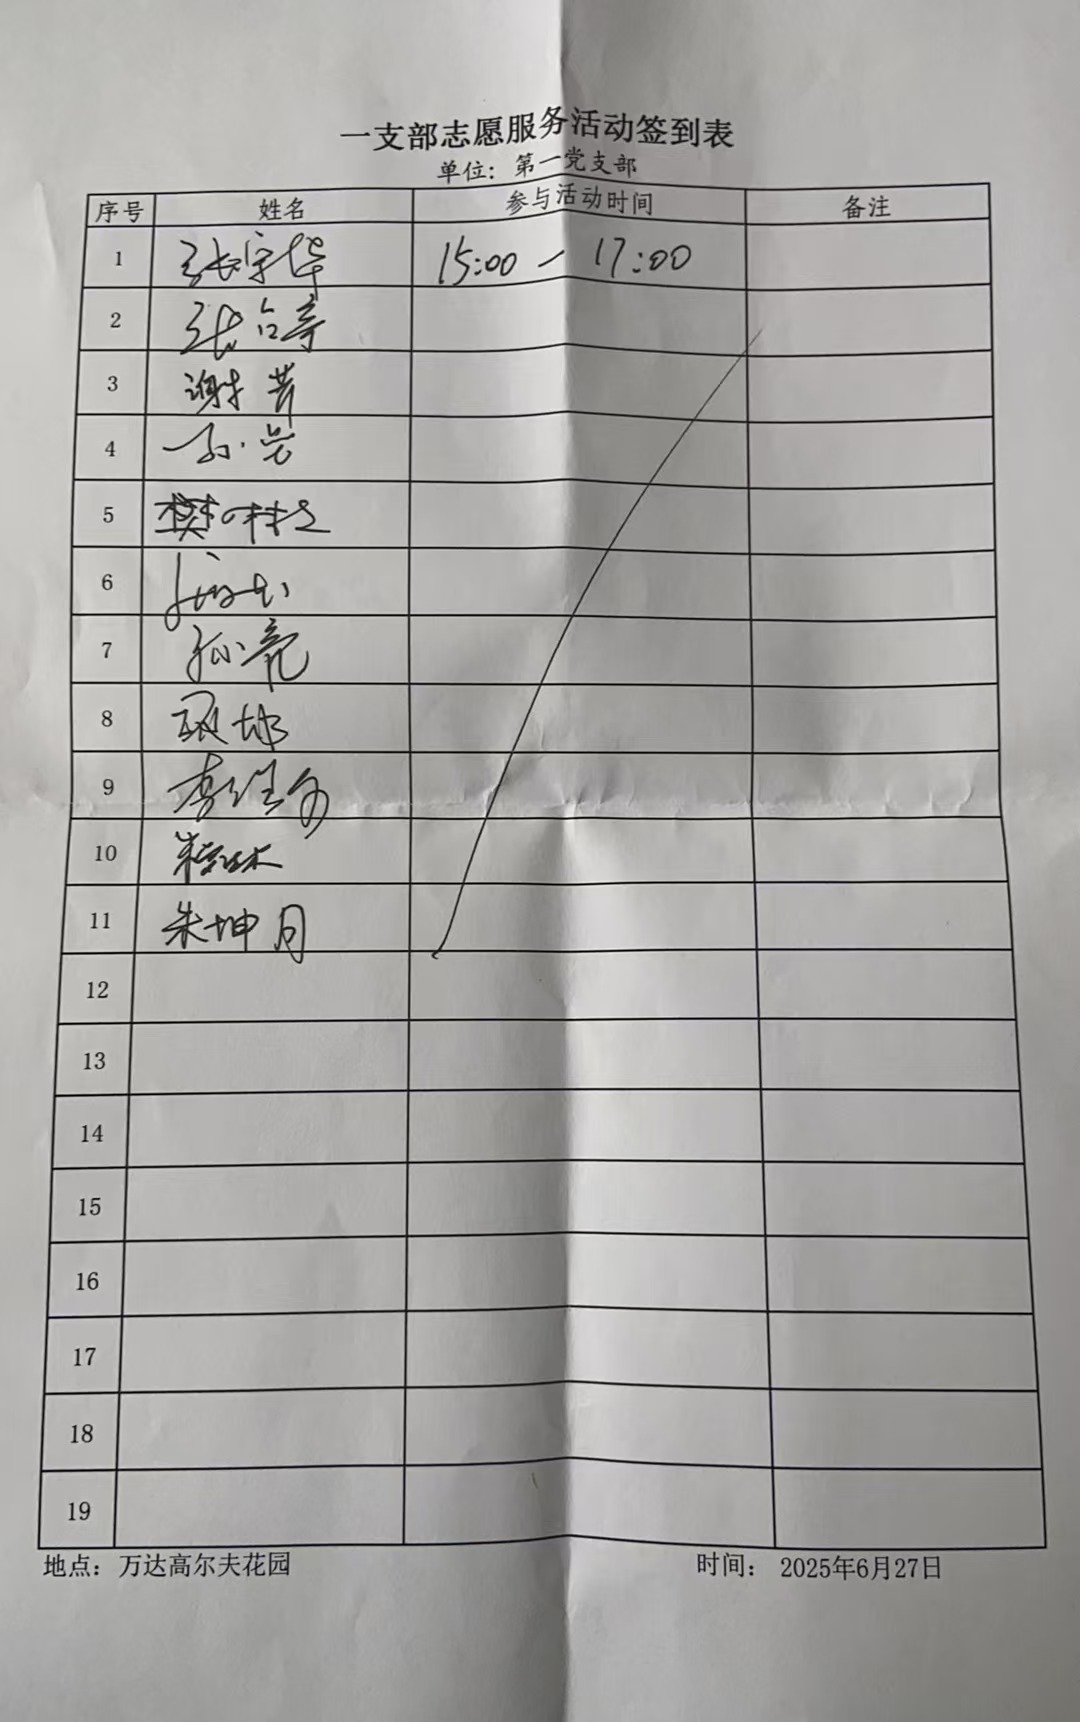 一支部志愿服务活动签到表
单位：第一党支部
序号 姓名 参与活动时间 备注
1 张宇华 15:00 — 17:00
2
3 谢苗
4
5
6
7 孙亮
8
9
10
11 朱坤月
12
13
14
15
16
17
18
19
地点：万达高尔夫花园 时间： 2025年6月27日